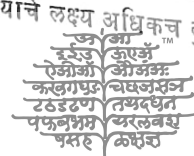 याचे लक्ष्य अधिकच
अ आ ™
इईउ ऊएॲ
ऐओऑ औअंअः
कखगघङ चछजझञ
टठडढण तथदधन
पफबभम यरलवश
षसह ळक्षज्ञ